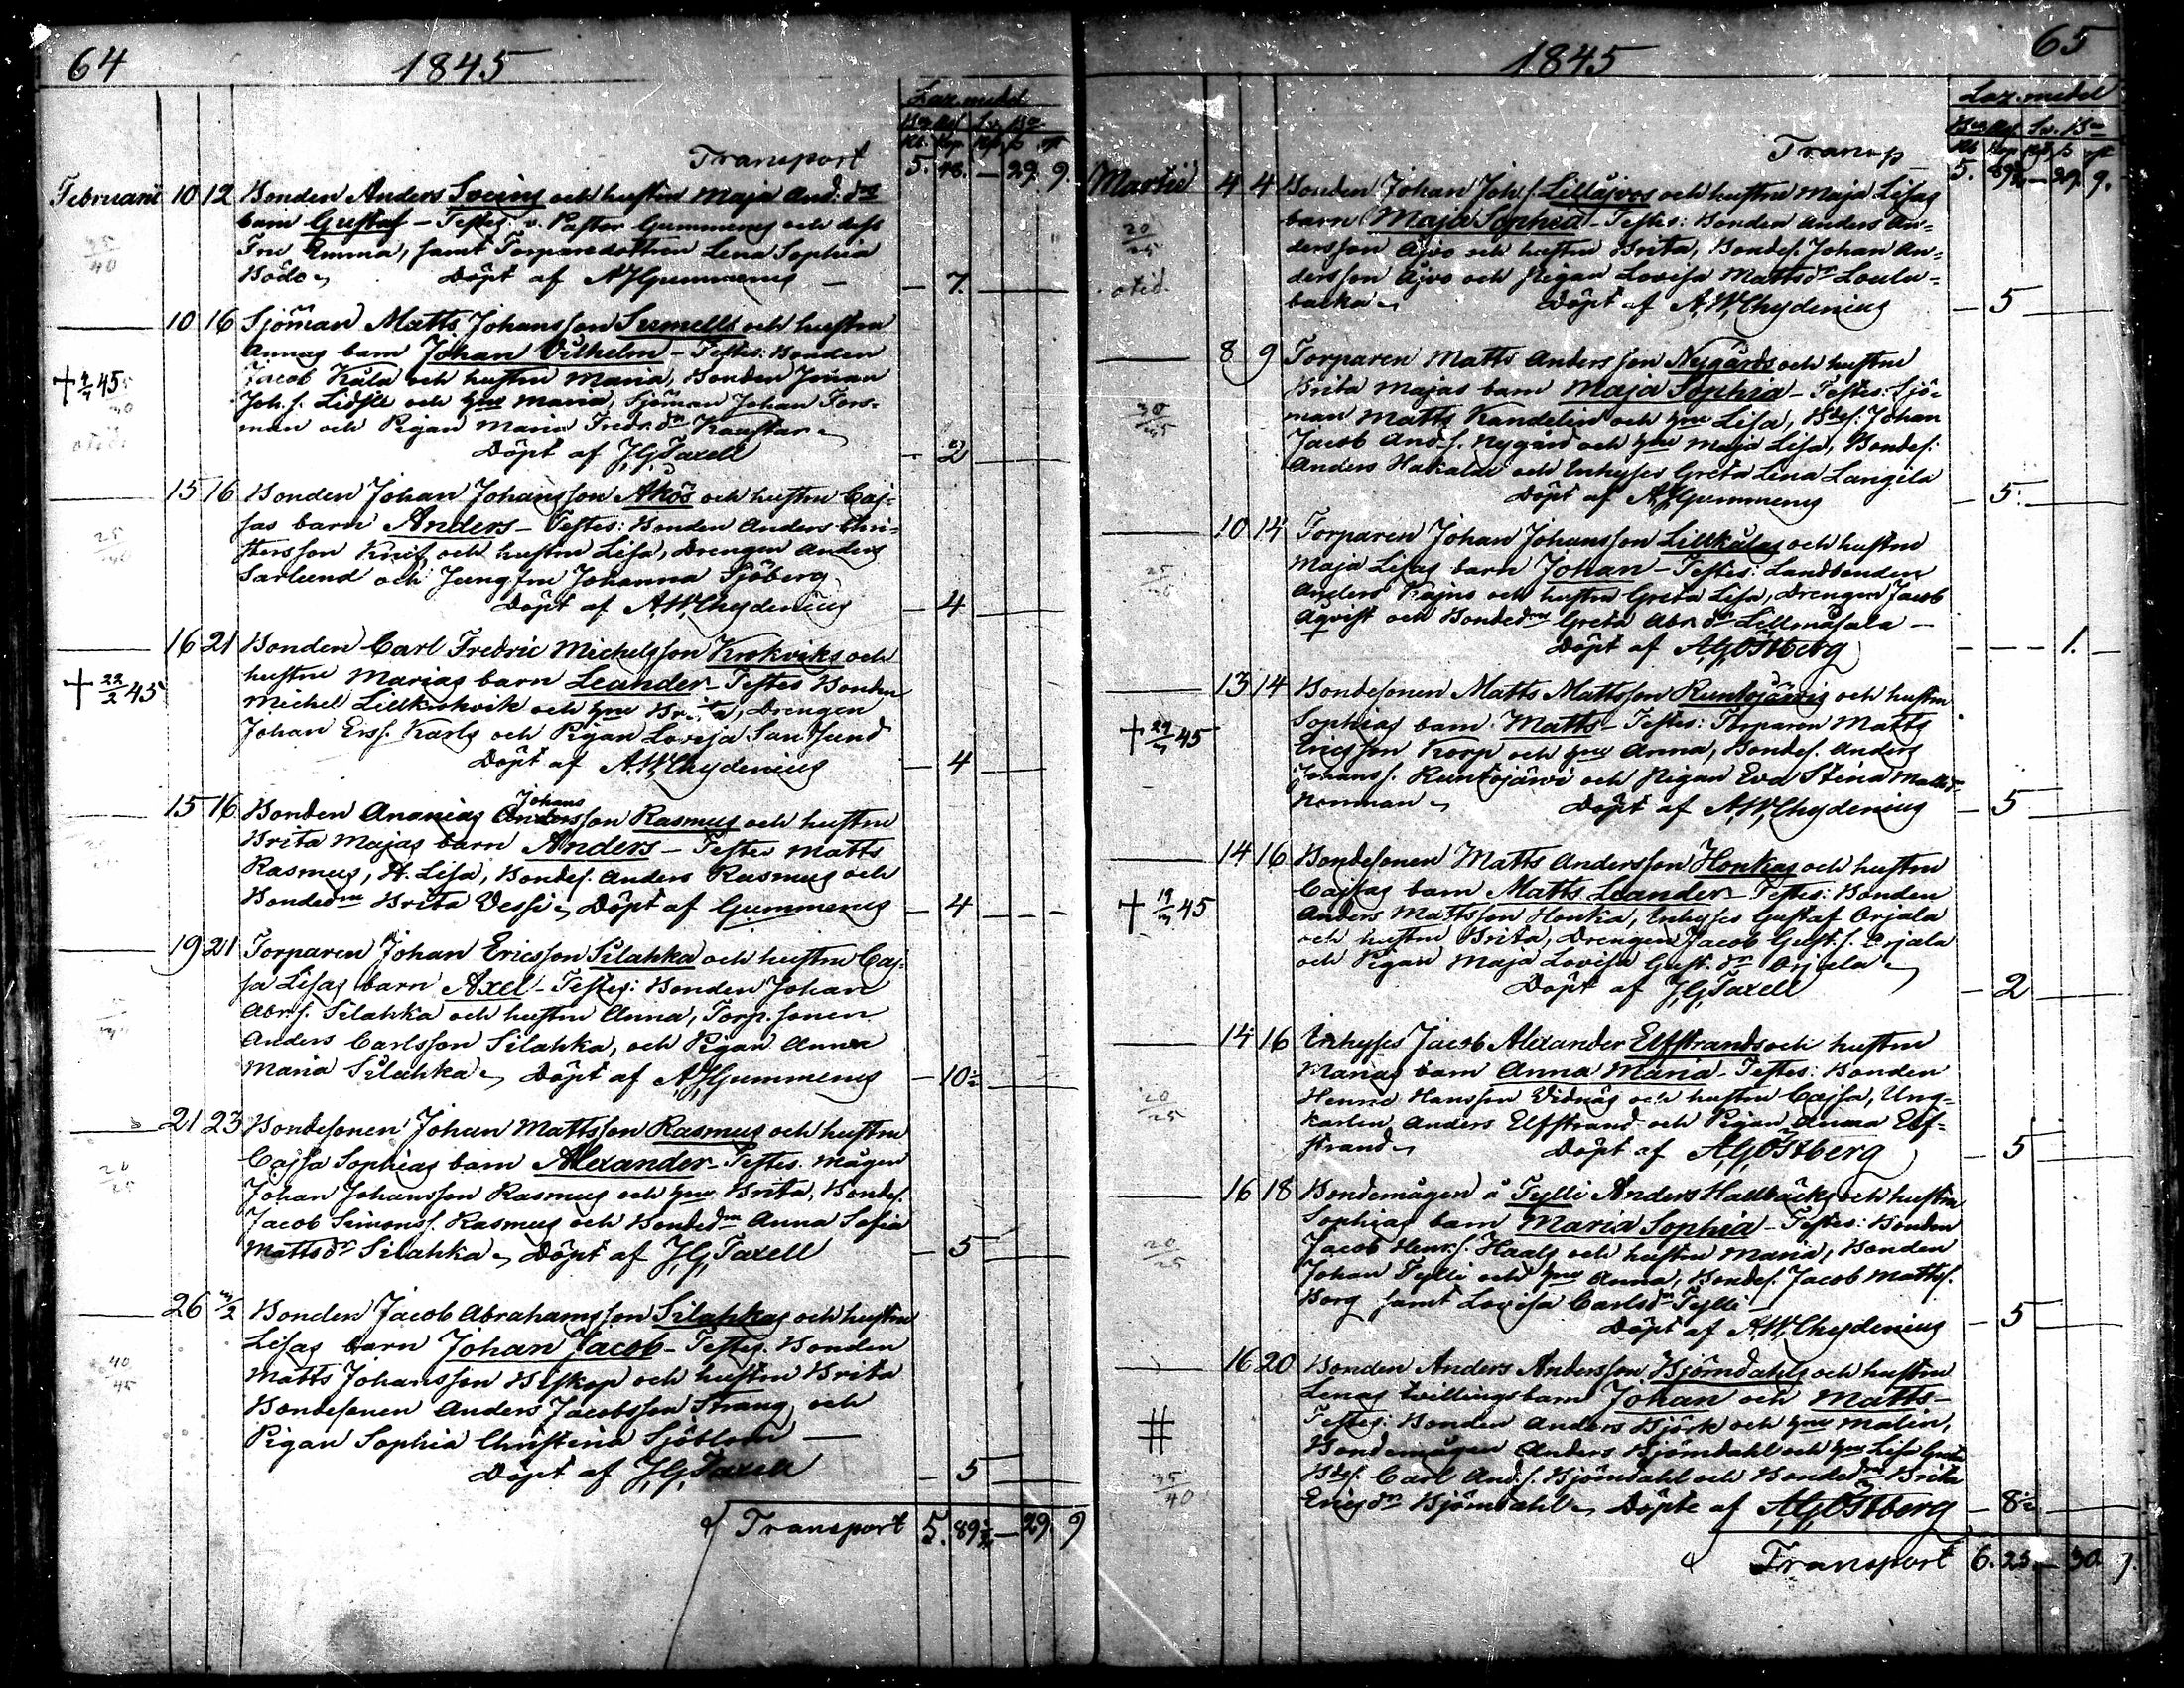 64
1845
Laz. medel
Transport 5. 48. — 29. 9.
Februarii 10 12 Bonden Anders Sveins och hustrun Maja And: drs
barn Gustaf — Testes: v. Pastor Gummerus och dess
Fru Emma, samt Torparedottren Lena Sophia
35/40
Böda. Döpt af AJGummerus — 7.
10 16 Sjöman Matts Johansson Sumells och hustru
Annas barn Johan Vilhelm — Testes: Bonden
Jacob Kåla och hustru Maria, Bonden Johan
45
Joh. s. Lidsle och hus Maria, Sjöman Johan Fors-
man och Pigan Maria Fredr. dr Kaustar
Döpt af J,G,Taxell — 2
15 16 Bonden Johan Johansson Åkös och hustru Caj-
sas barn Anders — Testes: Bonden Anders Chri-
stersson Knif och hustru Lisa, Drengen Anders
Sarlund och Jungfru Johanna Sjöberg
Döpt af A.W,Chydenius — 4
16 21 Bonden Carl Fredric Michelsson Krokviks och
hustru Marias barn Leander — Testes Bonden
+ 22/2 45
Michel Lillkrokvik och hus Brita, Drengen
Johan Erss. Karls och Pigan Lovisa Sandsund
Döpt af A.W,Chydenius — 4
Johans
15 16 Bonden Ananias Andersson Rasmus och hustru
Brita Majas barn Anders — Testes Matts
Rasmus, H. Lisa, Bondes. Anders Rasmus och
Bondedn Brita Vessi. Döpt af Gummerus — 4
19 21 Torparen Johan Ericsson Silahka och hustru Caj-
sa Lisas barn Axel — Testes: Bonden Johan
Abr. s. Silahka och hustru Anna, Torp. sonen
Anders Carlsson Silahka, och Pigan Anna
Maria Silahka. Döpt af A,J,Gummerus — 10
21 23 Bondesonen Johan Mattsson Rasmus och hustru
Cajsa Sophias barn Alexander — Testes. Mågen
20/25
Johan Johansson Rasmus och hus Brita, Bondes.
Jacob Simonss. Rasmus och Bondedn Anna Sofia
Mattsdr Silahka. Döpt af J,G,Taxell — 5
26 Bonden Jacob Abrahamsson Silahkas och hustru
Lisas barn Johan Jacob — Testes. Bonden
40/45
Matts Johansson Biskop och hustru Brita
Bondesonen Anders Jacobsson Strang och
Pigan Sophia Christina Sjöblom —
Döpt af J,G,Taxell — 5
Transport 5. 89 — 29. 9
65
1845
Laz. medel
Transp 5. 89 — 29. 9.
Martii 4 4 Bonden Johan Joh. s. Lillåjvos och hustru Maja Lisas
barn Maja Sophia — Testes: Bonden Anders An-
20/25
dersson Åjvo och hustru Brita, Bondes. Johan An-
dersson Åjvo och Pigan Lovisa Mattsdr Loulu-
backa. Döpt af A.W,Chydenius — 5
8 9 Torparen Matts Andersson Nygårds och hustru
Brita Majas barn Maja Sophia — Testes: Sjö-
man Matts Kandelin och hus Lisa, Bdes. Johan
Jacob And. s. Nygård och hus Maja Lisa, Bondes.
Anders Hakala och Inhyses Greta Lena Langila
Döpt af A,J,Gummerus — 5.
10 14 Torparen Johan Johansson Lillkålas och hustru
Maja Lisas barn Johan — Testes: Landbonden
Anders Kajns och hustru Greta Lisa, Drengen Jacob
Aqvist och Bondedn Greta Abr. dr Lillmåsala —
Döpt af A,G,Östberg — — — 1. —
13 14 Bondesonen Matts Mattsson Runtojärvis och hustru
Sophias barn Matts — Testes: Torparen Matts
45
Ericsson Korp och hus Anna, Bondes. Anders
Johanss. Runtojärvi och Pigan Eva Stina Mattsd
Norrman. Döpt af A.W,Chydenius — 5
14 16 Bondesonen Matts Andersson Honkas och hustru
Cajsas barn Matts Leander — Testes: Bonden
+ 19/3 45
Anders Mattsson Honka, Inhyses Gustaf Orjala
och hustru Brita, Drengen Jacob Gust. s. Orjala
och Pigan Maja Lovisa Gust. dr Orjala
Döpt af J,G,Taxell — 2
14 16 Inhyses Jacob Alexander Elfstrands och hustru
Marias barn Anna Maria — Testes: Bonden
20/25
Henric Hansson Vidnäs och hustru Cajsa, Ung-
karlen Anders Elfstrand och Pigan Anna Elf-
strand. Döpt af A,G,Östberg — 5
16 18 Bondemågen å Tylli Anders Hallbäcks och hustru
Sophias barn Maria Sophia — Testes: Bonden
20/25
Jacob Henr. s. Haals och hustru Maria, Bonden
Johan Tylli och hus Anna, Bondes. Jacob Mattss.
Borg samt Lovisa Carlsdr Tylli —
Döpt af A.W,Chydenius — 5
16 20 Bonden Anders Andersson Björndahls och hustru
Lenas tvillingsbarn Johan och Matts —
Testes: Bonden Anders Björk och hus Malin,
Bondemågen Anders Björndahl och hus Lisa Greta
35/40
Bdes. Carl And. s. Björndahl och Bondedn Brita
Ericsdr Björndahl. Döpte af A,G,Östberg — 8
Transport 6. 25 — 30. 9.